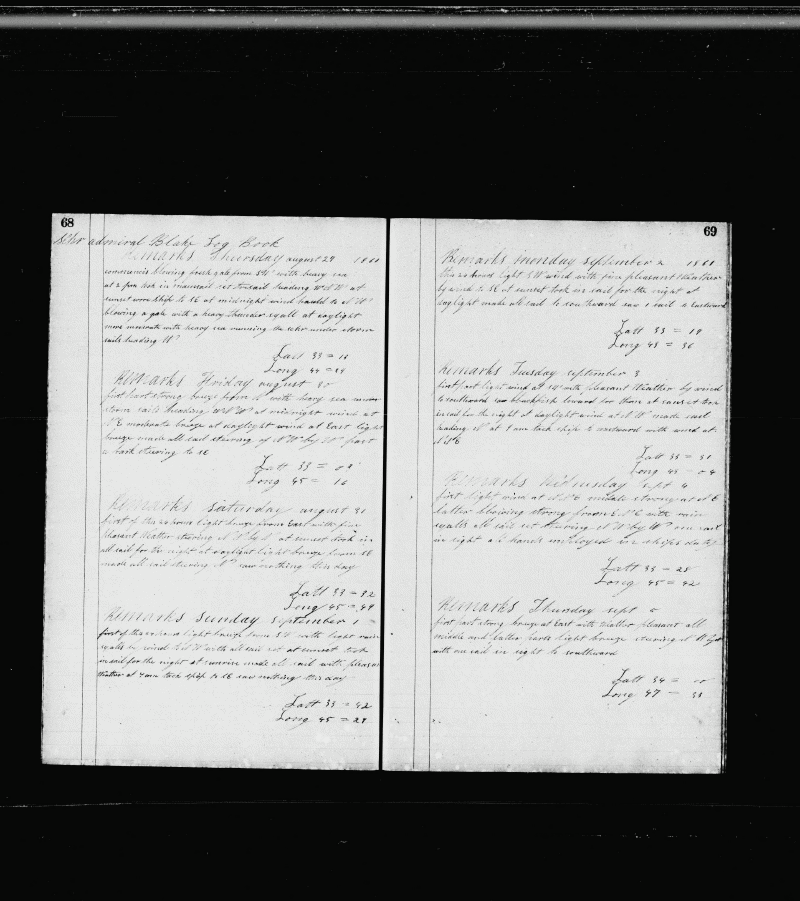 68
Schr admiral Blake Log Book
Remarks Thursday august 29
commencis blowing fresh gale from SW with heavy sea
at 2 pm took in mainsail set trysail heading at
sunset wore ship to SE at midnight wind hauld to
blowing a gale with a heavy thunder squall at daylight
more moderate with heavy sea running the schr under storm
sails heading
Latt 33 =
Long 44 =
Remarks Friday august 30
first part strong breeze from N with heavy sea under
storm sails heading at midnight wind at
NE moderate breeze at daylight wind at East light
breeze made all sail steering NW by W part
tack steering to SE
Latt 33 = 09
Long 45 = 10
Remarks Saturday august 31
first of this 24 hours light breeze from East with fine
pleasant weather steering at sunset took in
all sail for the night at daylight light breeze from SE
made all sail steering saw nothing this day
Latt 33 = 32
Long 45 = 49
Remarks Sunday September 1
first of this 24 hours light breeze from with light rain
squalls wind with all sail set at sunset took
in sail for the night at sunrise made all sail with pleasant
weather at 9 am tack ship to SE saw nothing this day
Latt 33 = 42
Long 45 = 29
69
Remarks monday september 2
this 24 hours light SW wind with fine pleasant weather
by wind to SE at sunset took in sail for the night at
daylight made all sail to southward saw 1 sail to Eastward
Latt 33 = 19
Long 45 = 36
Remarks Tuesday september 3
first part light wind at with pleasant weather by wind
to southward saw blackfish lowerd for them at sunset took
in sail for the night at daylight wind at made sail
heading at 9 am tack ship to eastward with wind at
Latt 33 = 31
Long 45 = 04
Remarks Wednesday sept 4
first light wind at middle strong at NE
latter blowing strong from with rain
squalls all sail set steering NW by W one sail
in sight all hands imployed in ships duty
Latt 33 = 28
Long 45 = 42
Remarks Thursday sept 5
first part strong breeze at East with weather pleasant all
middle and latter parts light breeze steering
with one sail in sight to southward
Latt 34 =
Long 47 = 38